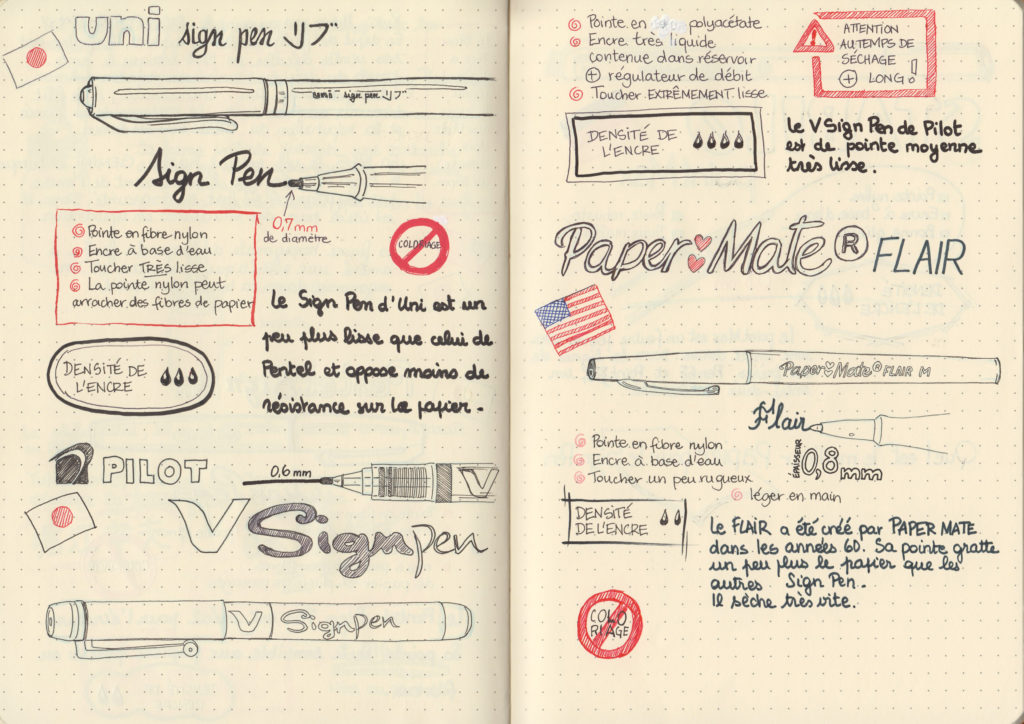 uni sign pen リブ
uni sign pen リブ
Sign Pen
0,7mm
de diamètre
Pointe en fibre nylon
Encre à base d'eau
Toucher TRÈS lisse
La pointe nylon peut
arracher des fibres de papier
COLORIAGE
Le Sign Pen d'Uni est un
peu plus lisse que celui de
Pentel et oppose moins de
résistance sur le papier.
DENSITÉ DE
L'ENCRE
PILOT
0,6 mm
V
V Signpen
V Signpen
Pointe en polyacétate
Encre très liquide
contenue dans réservoir
+ régulateur de débit
Toucher EXTRÊMEMENT lisse
ATTENTION
AU TEMPS DE
SÉCHAGE
+ LONG!
DENSITÉ DE
L'ENCRE
Le V Sign Pen de Pilot
est de pointe moyenne
très lisse.
Paper Mate® FLAIR
Paper Mate® FLAIR M
Flair
ÉPAISSEUR
0,8mm
Pointe en fibre nylon
Encre à base d'eau
Toucher un peu rugueux
léger en main
DENSITÉ
DE L'ENCRE
Le FLAIR a été créé par PAPER MATE
dans les années 60. Sa pointe gratte
un peu plus le papier que les
autres Sign Pen.
Il sèche très vite.
COLO
RIAGE